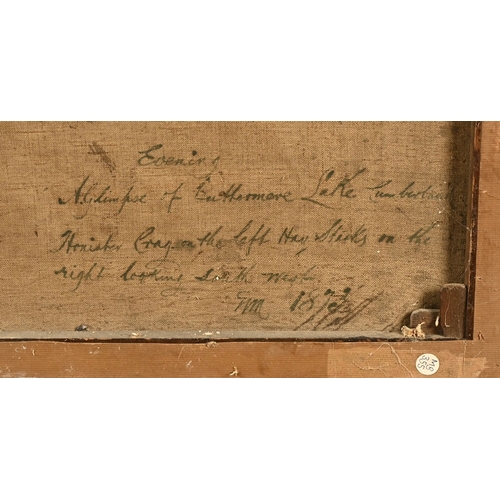 Evening
A Glimpse of Buttermere Lake Cumberland
Honister Crag on the left Hay Stacks on the
right looking South west.
WM 187
MG
355